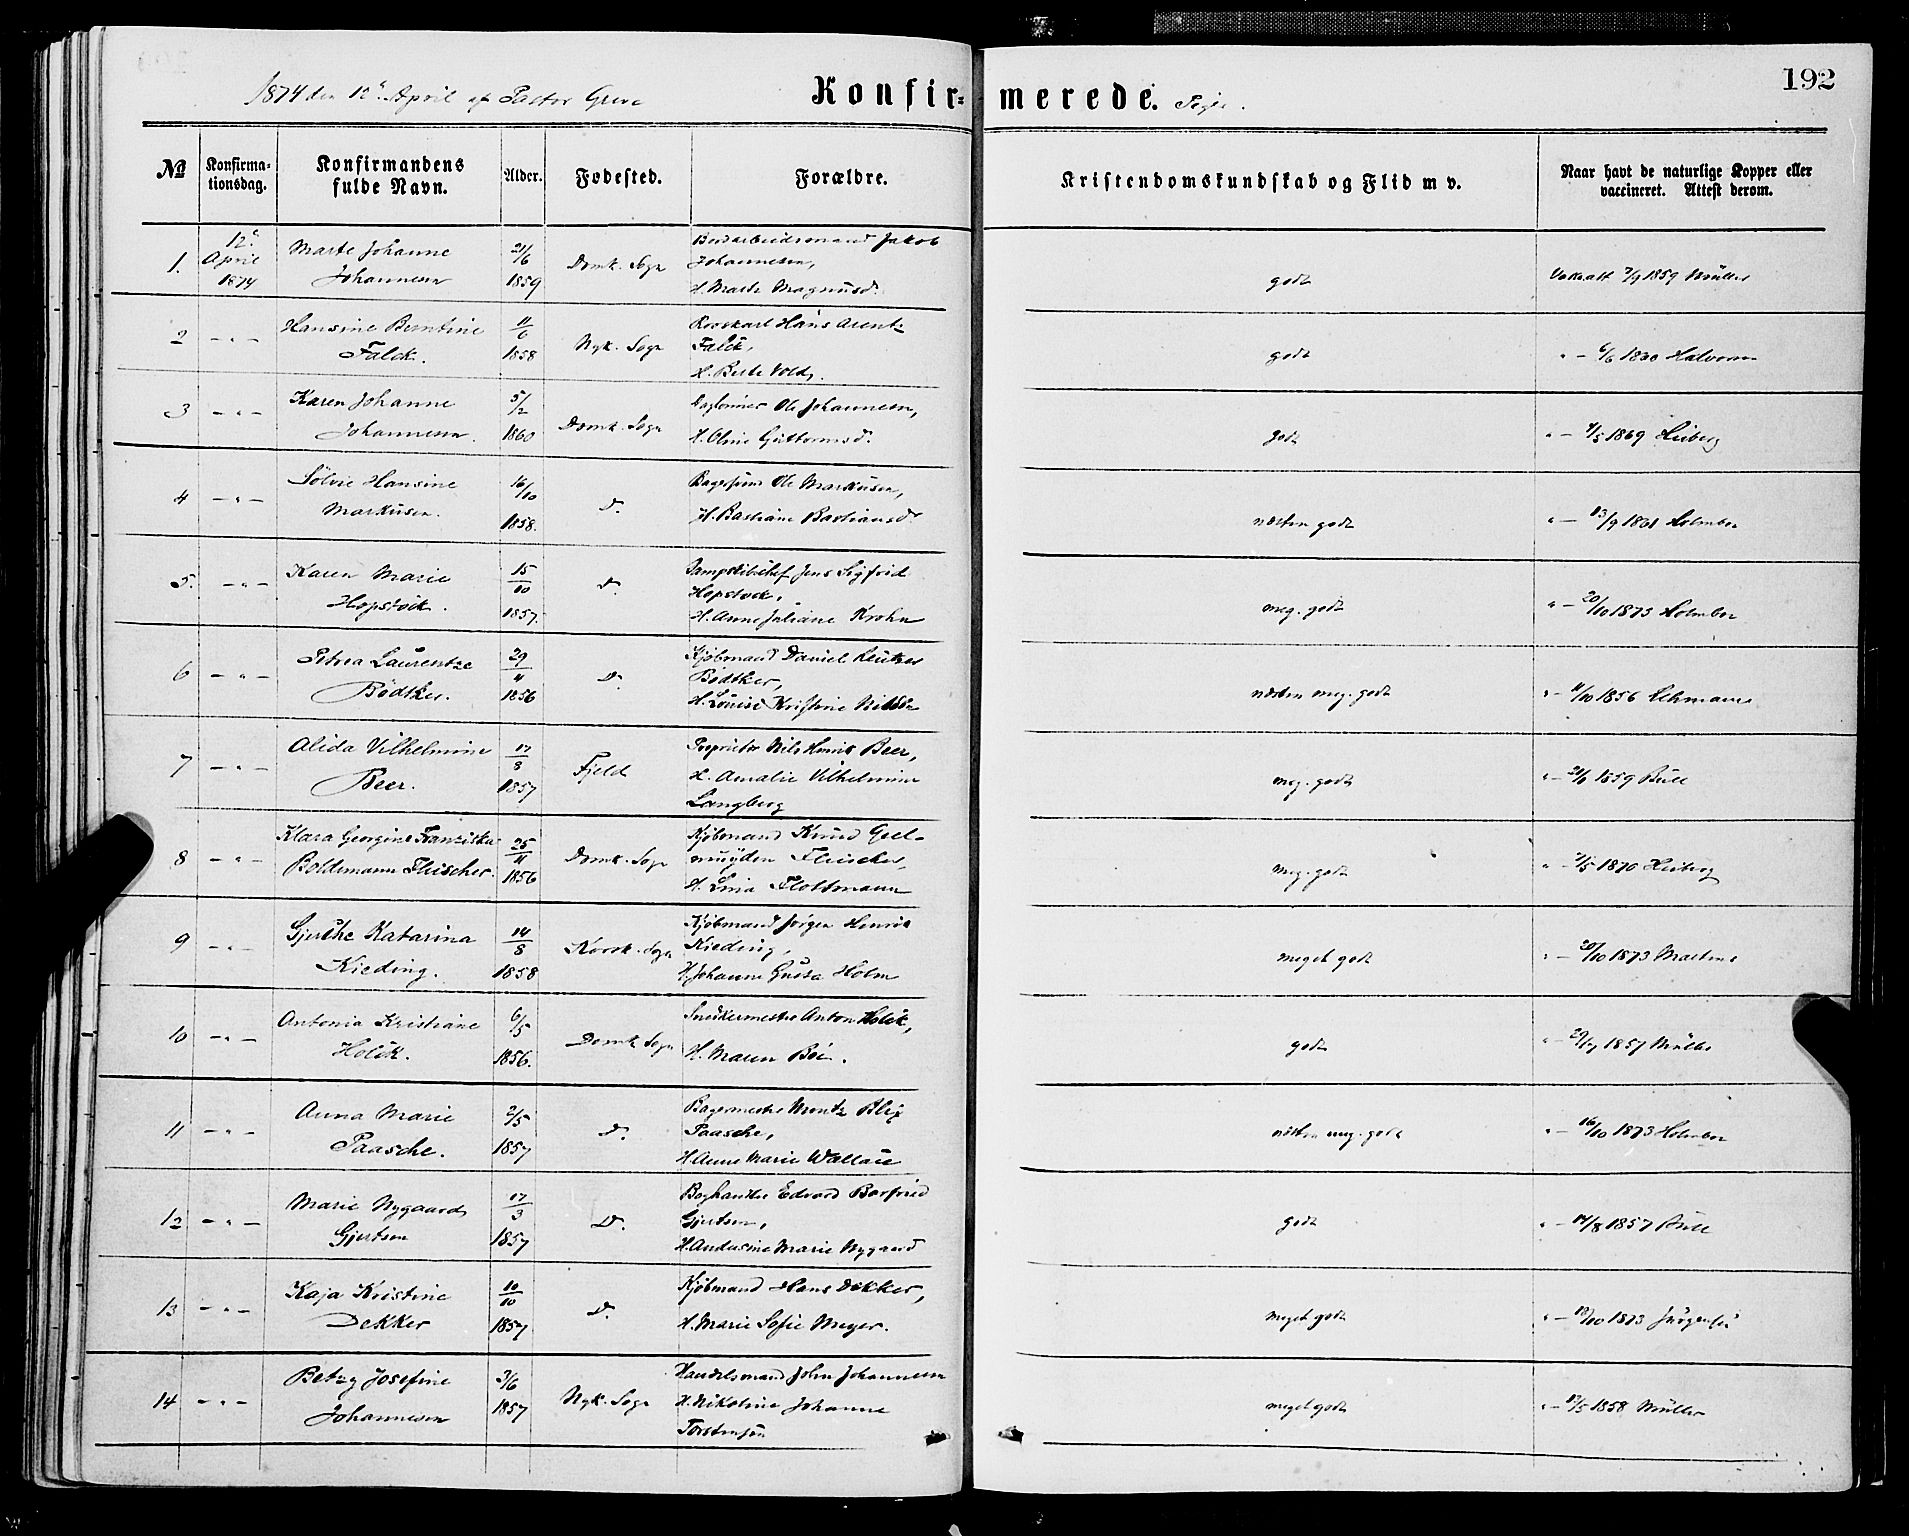 192
1874 den 12te April af Pastor Greve Konfir- merede. Piger.
No Konfirma-tionsdag. Konfirmandens fulde Navn. Alder. Fødested. Forældre. Kristendomskundskab og Flid m v. Naar havt de naturlige Kopper eller vaccineret. Attest derom.
12te
1. April Marte Johanne 21/6 Domk. Sogn Jakob
1874 Johannesen 1859 Johannesen, godt Vakc.att. 7/9 1859 Müller
H. Marte Magnusd.
2 -"- Hansine Berntine 11/6 Nyk. Sogn Hans Arentz
Falck. 1858 Falck, godt
H. Berte Vold.
3 -"- Karen Johanne 5/2 Domk. Sogn Ole Johannesen,
Johannesen. 1860 H. Oline Guttormsd. godt "- 4/5 1869 Heiberg
4 -"- Sølvie Hansine 16/10 D. Ole Markusen,
Markusen. 1858. H. Bastiane Bastiansd. næsten godt "- 13/9 1861 Holmboe
5. -"- Karen Marie 15/10 D. Jens Sigfrid
Hopstock. 1857. Hopstock, meg. godt "- 20/10 1873 Holmboe
H. Anne Juliane Krohn
6 -"- Petrea Laurentze 29/11 D. Kjøbmand Daniel
Bødtker. 1856 Bødtker, næsten meg. godt "- 11/10 1856 Lehmann
H. Louise Kristine
7 -"- Alida Vilhelmine 17/8 Fjeld Proprietær Nils Henrik Beer,
Beer. 1857 H. Amalie Vilhelmine meg. godt "- 21/6 1859 Bull
Langberg
8 -"- Klara Georgine Franziska 25/11 Domk. Sogn Kjøbmand Knud Geel-
Boldemann Fleischer. 1856 muyden Fleischer, meg. godt "- 7/5 1870 Heiberg
H. Lina Flottmann
9 -"- Gjerthe Katarina 14/8 Korsk. Sogn Kjøbmand Jørgen Henrik
Kieding. 1858 Kieding, meget godt "- 20/10 1873 Martens
H. Johanne Gusta Holm
10 -"- Antonia Kristiane 6/5 Domk. Sogn Snedkermester Anton Holck,
Holck. 1856. H. Maren Bøe. godt "- 29/7 1857 Müller
11 -"- Anna Marie 2/5 D. Bagermester Mentz Blix
Paasche. 1857 Paasche, næsten meg. godt "- 16/10 1873 Holmboe
H. Anne Marie Wallace
12 -"- Marie Nygaard 17/3 D. Boghandler Edvard Barfried
Gjertsen 1857 Gjertsen, godt "- 14/8 1857 Bull
H. Andusine Marie Nygaard
13 -"- Kaja Kristine 10/10 D. Kjøbmand Hans Dekker,
Dekker 1857 H. Marie Sofie Meyer. meget godt "- 18/10 1873
14 -"- Betzy Josefine 3/6 Nyk. Sogn Handelsmand John Johannesen
Johannesen 1857 H. Nikoline Johanne meget godt "- 17/5 1858 Müller
Torstensen